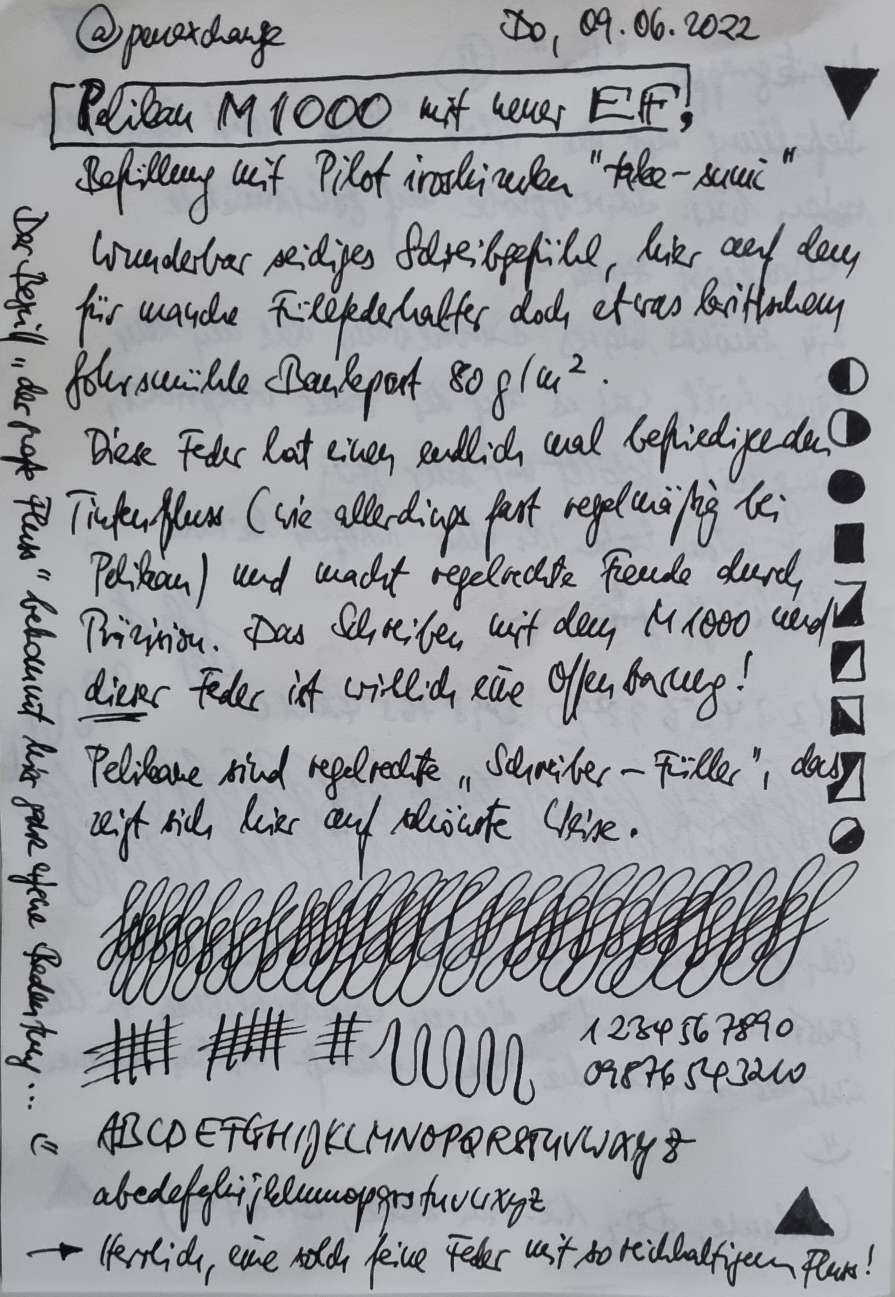 @penexchange
Do, 09.06.2022
Pelikan M1000 mit neuer EF!
Befüllung mit Pilot iroshizuku "take-sumi"
Wunderbar seidiges Schreibgefühl, hier auf dem
für manche Füllfederhalter doch etwas kritischem
Gohrsmühle Bankpost 80 g/m².
Diese Feder hat einen endlich mal befriedigenden
Tintenfluss (wie allerdings fast regelmäßig bei
Pelikan) und macht regelrechte Freude durch
Präzision. Das Schreiben mit dem M1000 und
dieser Feder ist wirklich eine Offenbarung!
Pelikane sind regelrechte „Schreiber-Füller", das
zeigt sich hier auf schönste Weise.
1234567890
09876543210
ABCDEFGHIJKLMNOPQRSTUVWXYZ
abcdefghijklmnopqrstuvwxyz
→ Herrlich, eine solch feine Feder mit so reichhaltigem Fluss!
Der Begriff „der große Fluss" bekommt hier ganz eigene Bedeutung... :)